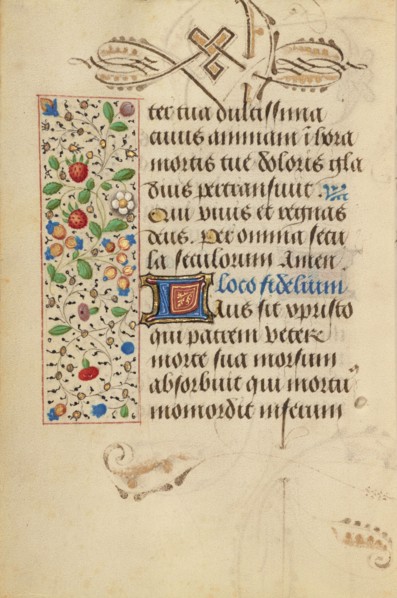 ter tua dulcissima
cuius animam ī hora
mortis tue doloris gla
dius pertransiuit .
Qui viuis et regnas
deus. Per omnia secu
la seculorum Amen.
loco fidelium
Laus sit xpristo
qui patrem veterē
morte sua morsum
absorbuit qui mortu
momordit inferum